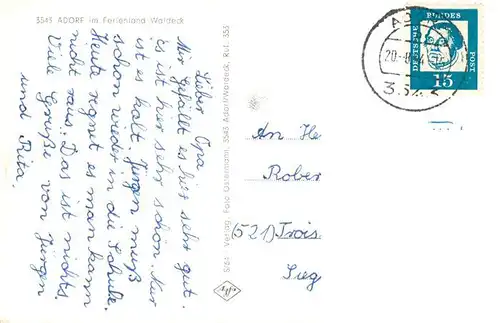 3543 ADORF im Ferienland Waldeck
Lieber Opa
Mir gefällt es hier sehr gut.
es ist hier sehr schön. Nur
ist es kalt. Jürgen muß
schon wieder in die Schule.
Heute regnet es man kann
nicht raus. Das ist nichts.
Viele Grüße von Jürgen
und Rita.
Verlag: Foto Ostermann, 3543 Adorf/Waldeck, Ruf: 355
An He
Rober
(521) Trois
Sieg
DEUTSCHE BUNDESPOST
15